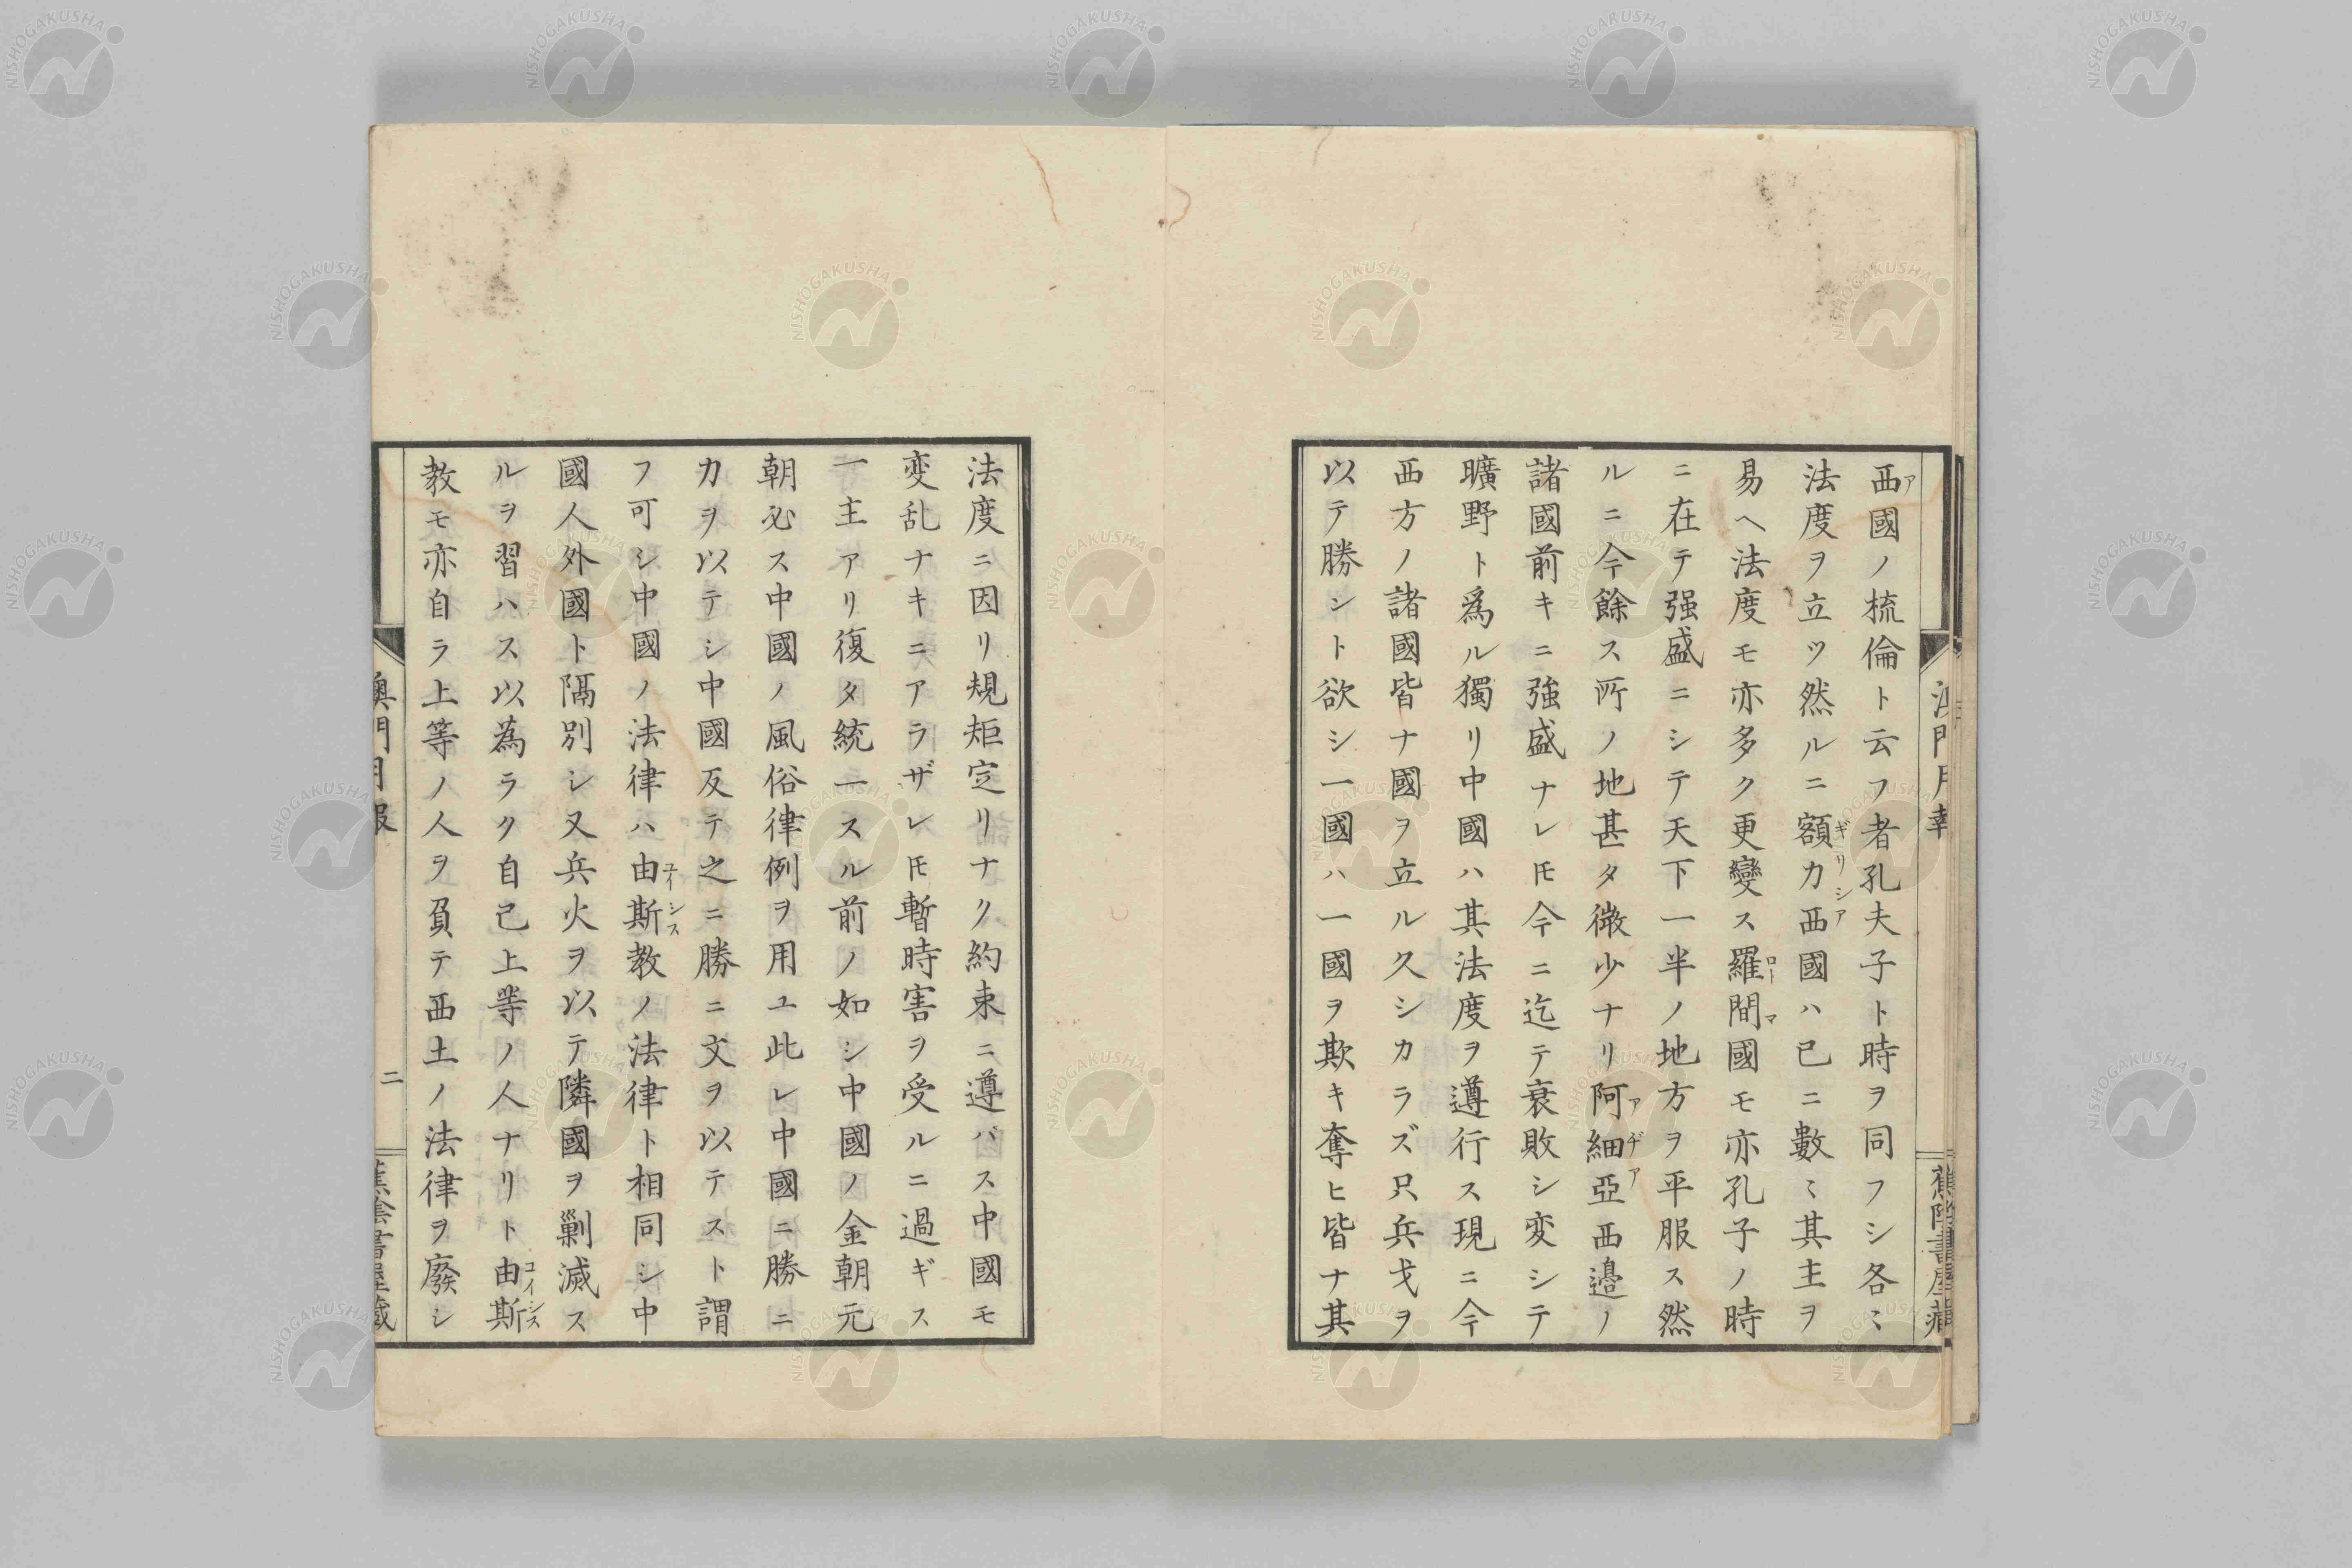 西國ノ梳倫ト云フ者孔夫子ト時ヲ同フシ各〻
ア
法度ヲ立ツ然ルニ額力西國ハ已ニ數〻其主ヲ
ギリシア
易ヘ法度モ亦多ク更變ス羅間國モ亦孔子ノ時
ローマ
ニ在テ强盛ニシテ天下一半ノ地方ヲ平服ス然
ルニ今餘ス所ノ地甚タ微少ナリ阿細亞西邉ノ
アヂア
諸國前キニ強盛ナレ𪜈今ニ迄テ衰敗シ変シテ
曠野ト爲ル獨リ中國ハ其法度ヲ遵行ス現ニ今
西方ノ諸國皆ナ國ヲ立ル久シカラズ只兵戈ヲ
以テ勝ント欲シ一國ハ一國ヲ欺キ奪ヒ皆ナ其
法度ニ因リ規矩定リナク約束ニ遵バス中國モ
変乱ナキニアラザレ𪜈暫時害ヲ受ルニ過ギス
一主アリ復タ統一スル前ノ如シ中國ノ金朝元
朝必ス中國ノ風俗律例ヲ用ユ此レ中國ニ勝ニ
力ヲ以テシ中國反テ之ニ勝ニ文ヲ以テスト謂
フ可シ中國ノ法律ハ由斯教ノ法律ト相同シ中
ユイシス
國人外國ト隔別シ又兵火ヲ以テ隣國ヲ剿滅ス
ルヲ習ハス以為ラク自己上等ノ人ナリト由斯
コイシス
教モ亦自ラ上等ノ人ヲ負テ西土ノ法律ヲ廢シ
澳門月報
二
蕉陰書屋藏
NISHOGAKUSHA